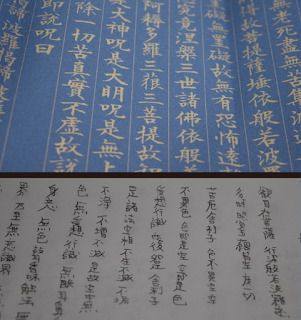 無老死盡無苦集
得故菩提薩埵依般若波
罣礙無罣礙故無有恐怖遠
究竟涅槃三世諸佛依般若
阿耨多羅三藐三菩提故知
是大神咒是大明咒是無上
除一切苦真實不虛故說
即說咒曰
諦波羅揭諦波羅
觀自在菩薩 行深般若波羅蜜多
時照見五蘊皆空 度一切
苦厄 舍利子 色不異空 空
不異色 色即是空 空即是色
受想行識 亦復如是 舍利子
是諸法空相 不生不滅 不垢
不淨 不增不減 是故空中無
色 無受想行識 無眼耳鼻
身意 無色聲香味觸法 無
界 乃至無意識界